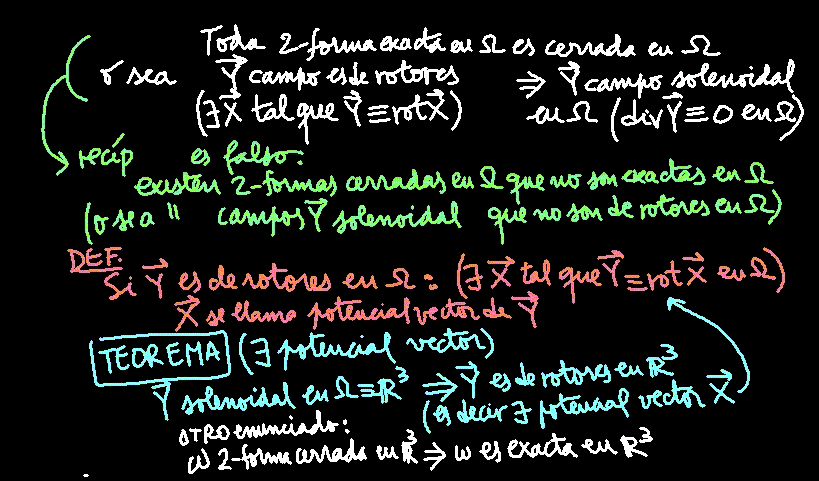 Toda 2-forma exacta en Ω es cerrada en Ω
o sea Y⃗ campo es de rotores ⇒ Y⃗ campo solenoidal
(∃X⃗ tal que Y⃗ ≡ rot X⃗) en Ω (div Y⃗ ≡ 0 en Ω)
recíp es falso:
existen 2-formas cerradas en Ω que no son exactas en Ω
(o sea " campos Y⃗ solenoidal que no son de rotores en Ω)
DEF:
Si Y⃗ es de rotores en Ω: (∃ X⃗ tal que Y⃗ ≡ rot X⃗ en Ω)
X⃗ se llama potencial vector de Y⃗
TEOREMA (∃ potencial vector)
Y⃗ solenoidal en Ω ≡ ℝ³ ⇒ Y⃗ es de rotores en ℝ³
(es decir ∃ potencial vector X⃗
OTRO enunciado:
ω 2-forma cerrada en ℝ³ ⇒ ω es exacta en ℝ³